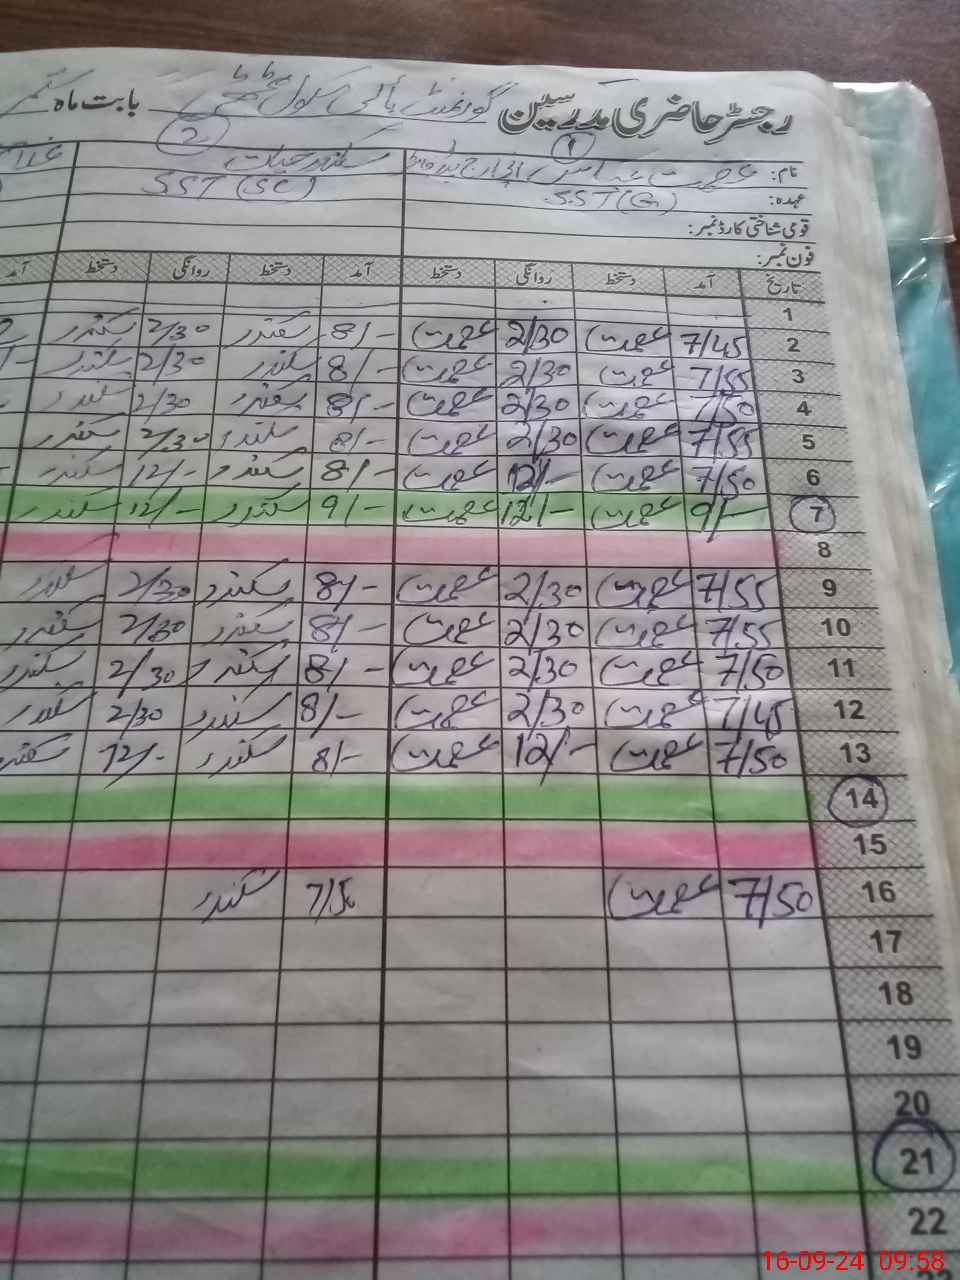 رجسٹر حاضری مدرسین گورنمنٹ ہائی سکول بابت ماہ ستمبر
1 2
نام: سکندر حیات
عہدہ: S.S.T(G) SST(SC)
قومی شناختی کارڈ نمبر:
فون نمبر:
تاریخ آمد دستخط روانگی دستخط آمد دستخط روانگی دستخط آمد
1
2 7/45 عصمت 2/30 عصمت 8/- سکندر 2/30 سکندر
3 7/55 عصمت 2/30 عصمت 8/- سکندر 2/30 سکندر
4 7/50 عصمت 2/30 عصمت 8/- سکندر 2/30 سکندر
5 7/55 عصمت 2/30 عصمت 8/- سکندر 2/30 سکندر
6 7/50 عصمت 12/- عصمت 8/- سکندر 12/- سکندر
7 9/- عصمت 12/- عصمت 9/- سکندر 12/- سکندر
8
9 7/55 عصمت 2/30 عصمت 8/- سکندر 2/30 سکندر
10 7/55 عصمت 2/30 عصمت 8/- سکندر 2/30 سکندر
11 7/50 عصمت 2/30 عصمت 8/- سکندر 2/30 سکندر
12 7/45 عصمت 2/30 عصمت 8/- سکندر 2/30 سکندر
13 7/50 عصمت 12/- عصمت 8/- سکندر 12/- سکندر
14
15
16 7/50 عصمت 7/50 سکندر
17
18
19
20
21
22
16-09-24 09:58